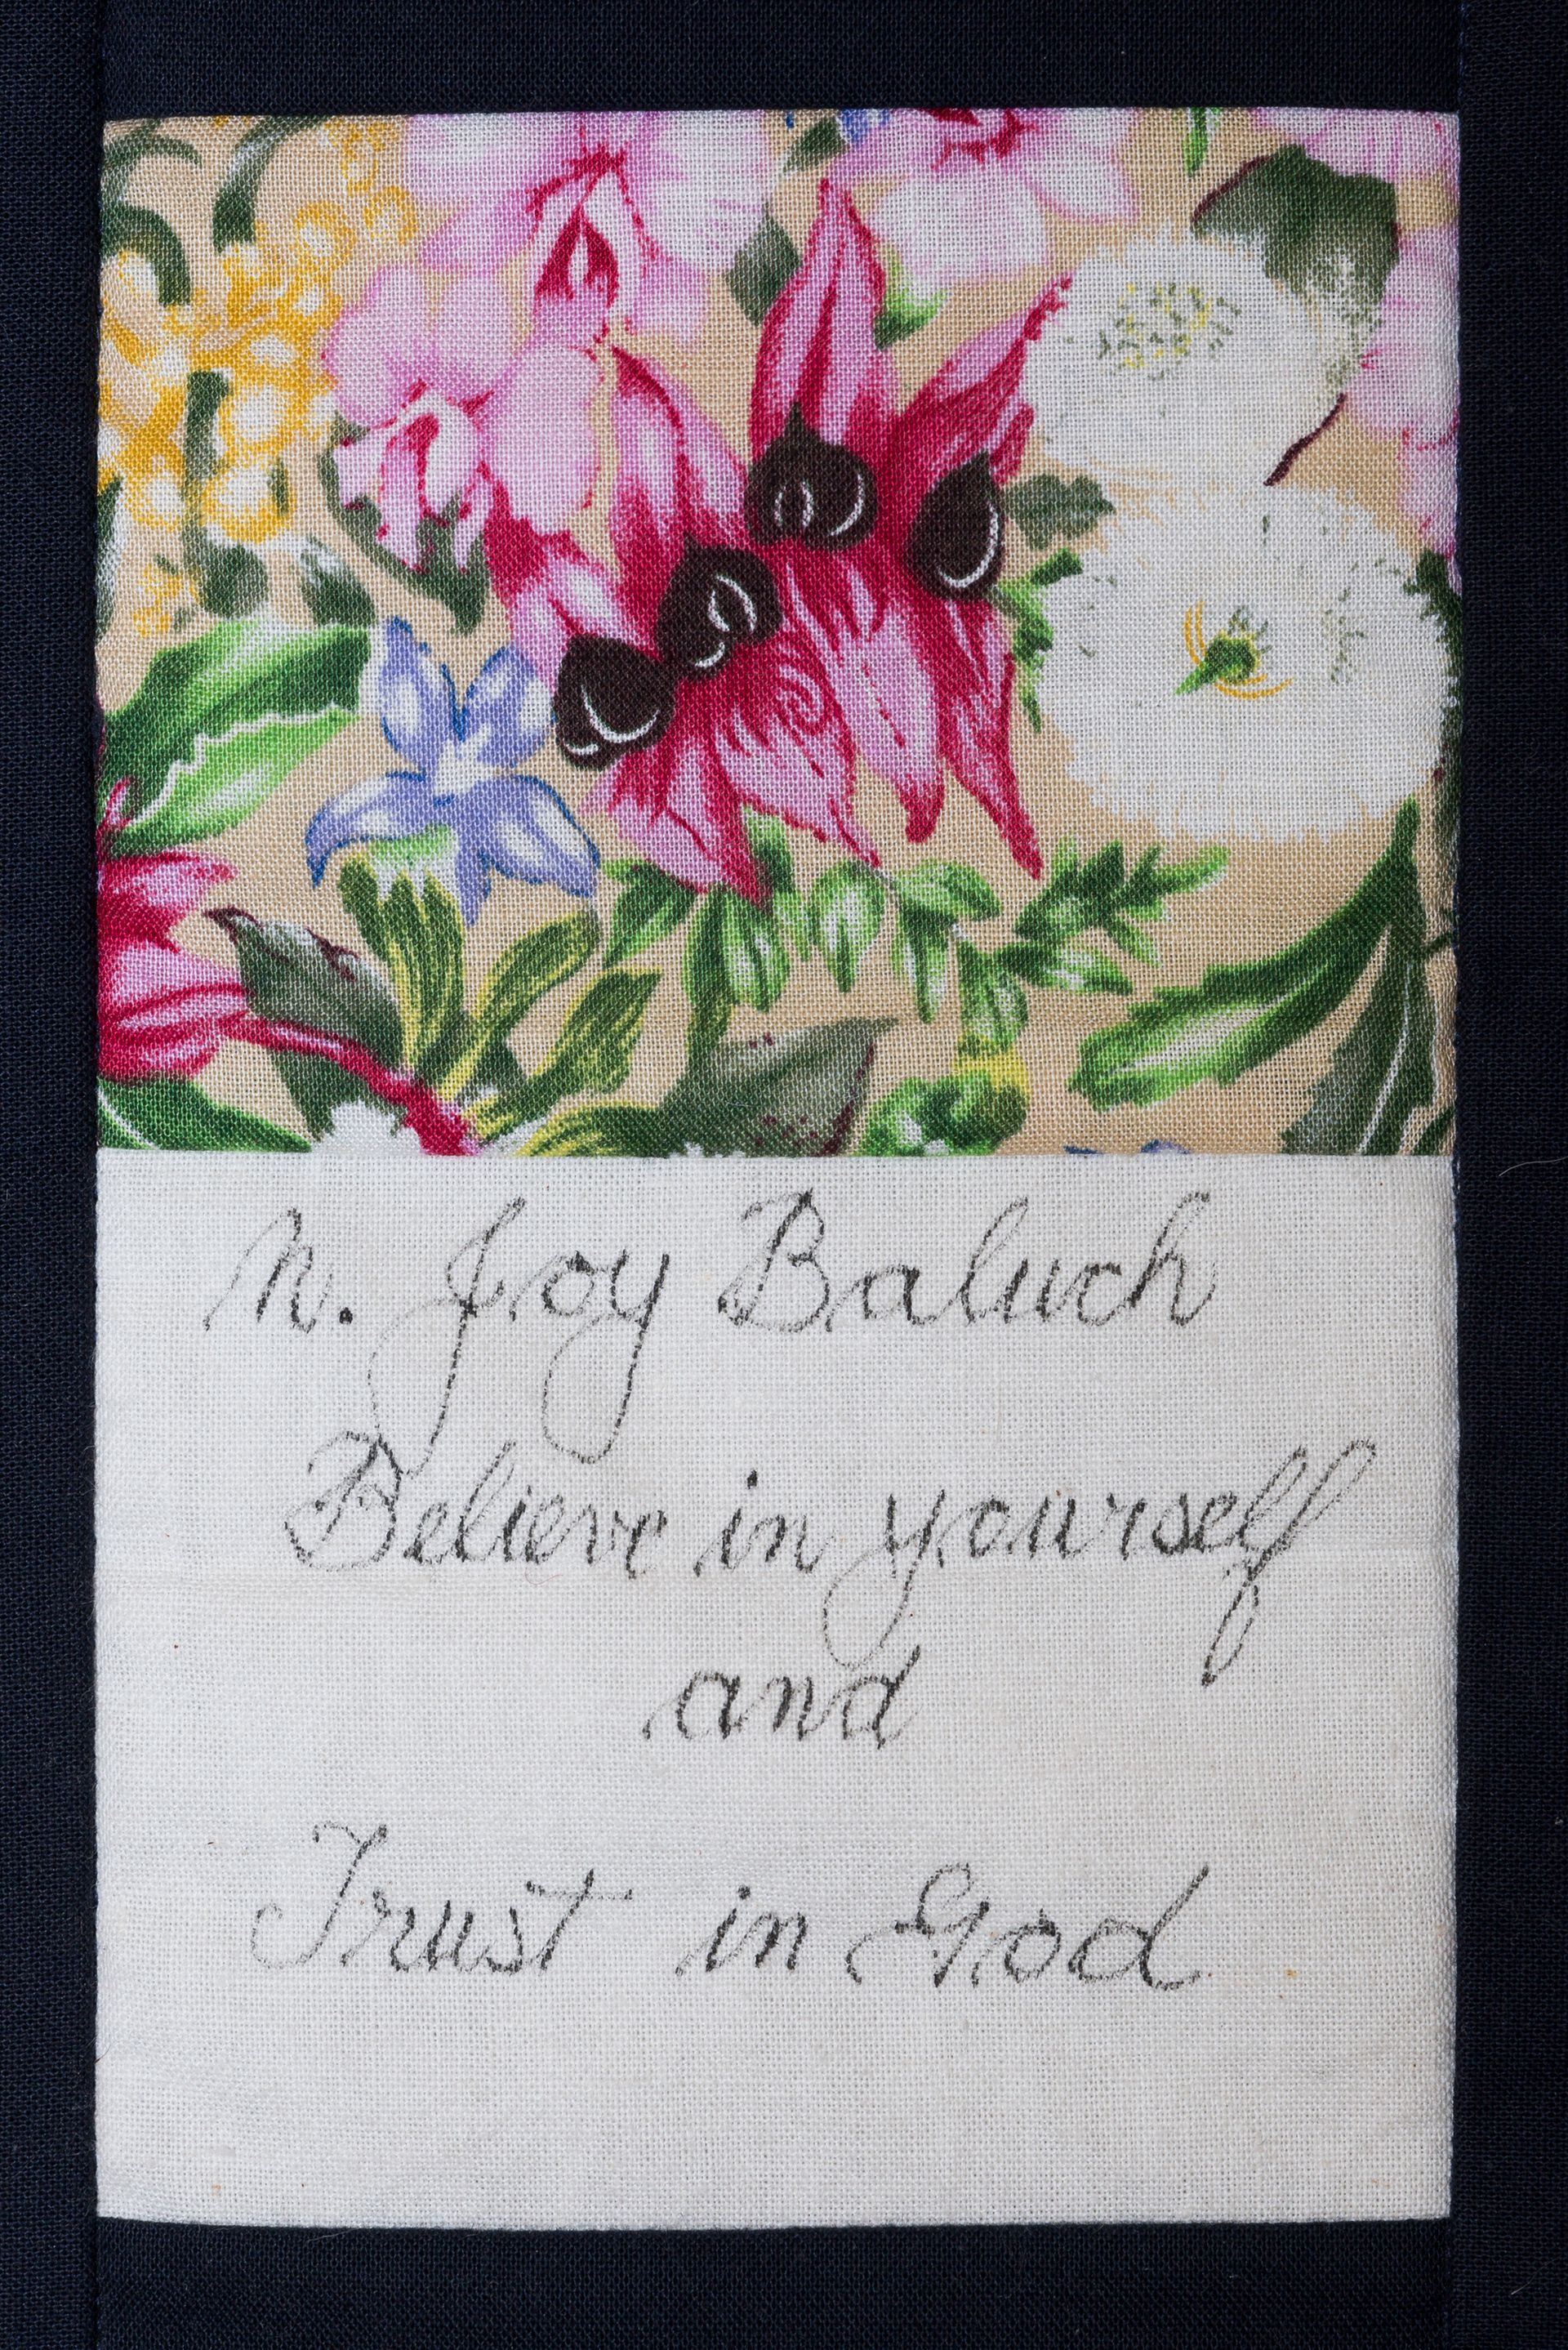 N. Joy Baluch
Believe in yourself
and
Trust in God